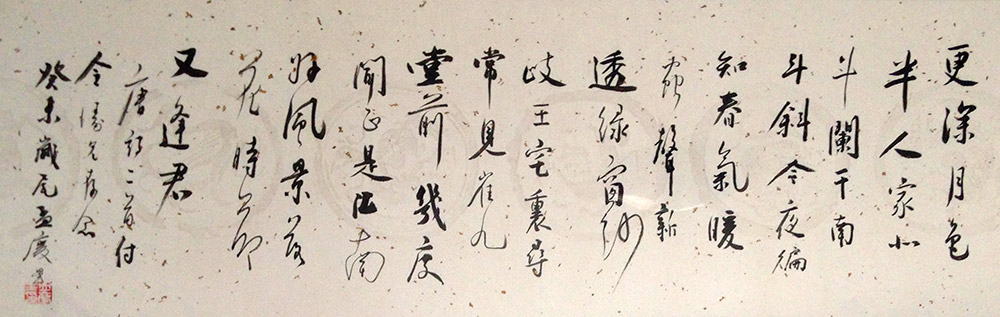 更深月色
半人家北
斗闌干南
斗斜今夜徧
知春氣暖
蟲聲新
透绿窗纱
岐王宅裏尋
常見崔九
堂前幾度
聞正是江南
好風景落
花時节
又逢君
唐詩二首付
令濤兄存念
癸未歲尾孟慶